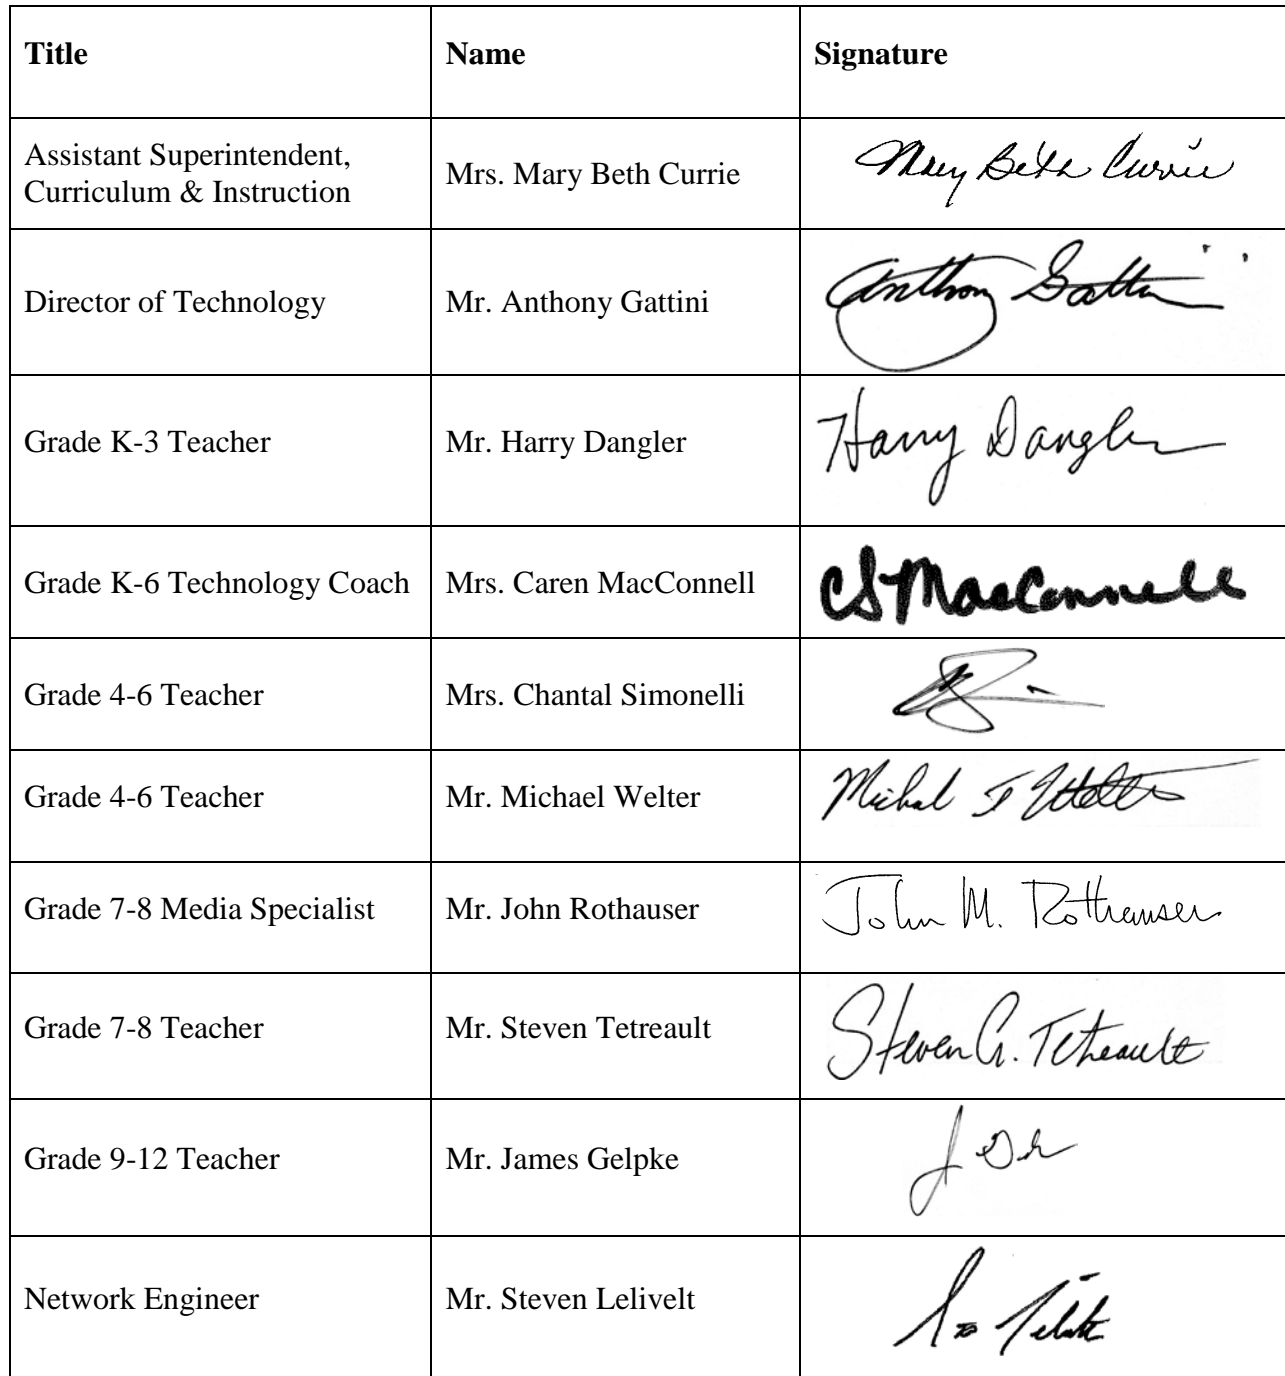 Title Name Signature
Assistant Superintendent,
Curriculum & Instruction
Mrs. Mary Beth Currie
Mary Beth Currie
Director of Technology
Mr. Anthony Gattini
Anthony Gattini
Grade K-3 Teacher
Mr. Harry Dangler
Harry Dangler
Grade K-6 Technology Coach
Mrs. Caren MacConnell
CSMacConnell
Grade 4-6 Teacher
Mrs. Chantal Simonelli
Grade 4-6 Teacher
Mr. Michael Welter
Michael J Welter
Grade 7-8 Media Specialist
Mr. John Rothauser
John M. Rothauser
Grade 7-8 Teacher
Mr. Steven Tetreault
Steven G. Tetreault
Grade 9-12 Teacher
Mr. James Gelpke
Network Engineer
Mr. Steven Lelivelt